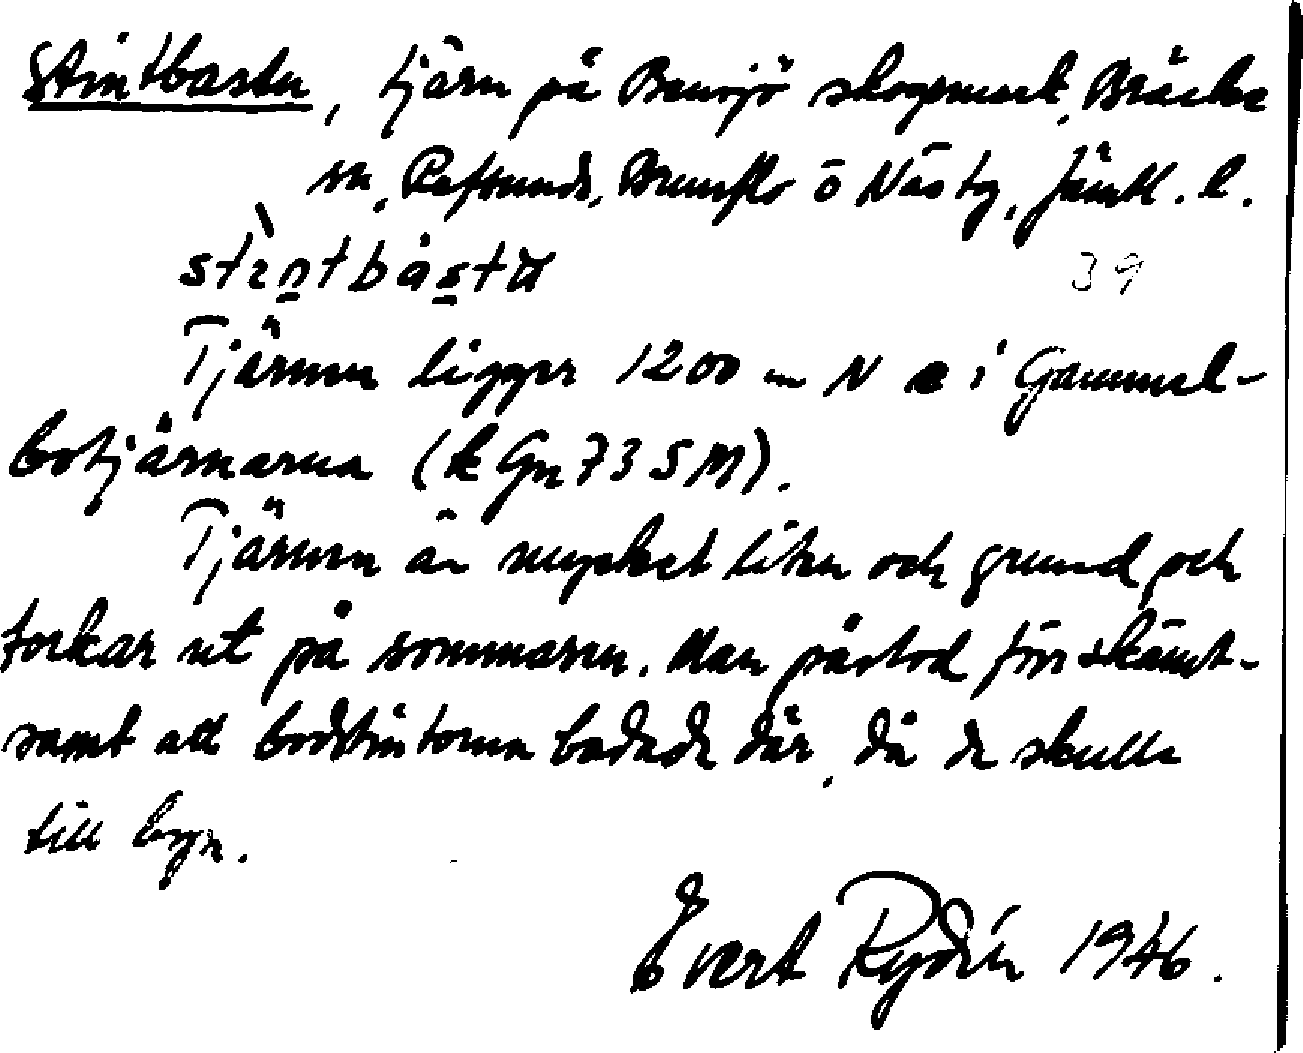 Stintbastu, tjärn på Bensjö skogsmark, Bräcke
sn, Refsunds, Brunflo ö Näs tg, Jämtl. l.
stìntbåstu
39
Tjärnen ligger 1200 m N i Gammel-
botjärnarna (k Gn 73 5 M).
Tjärnen är mycket liten och grund, och
torkar ut på sommaren. Man påstod förr skämt-
samt att bodstintorna badade där, då de skulle
till byn.
Evert Rydén 1946.